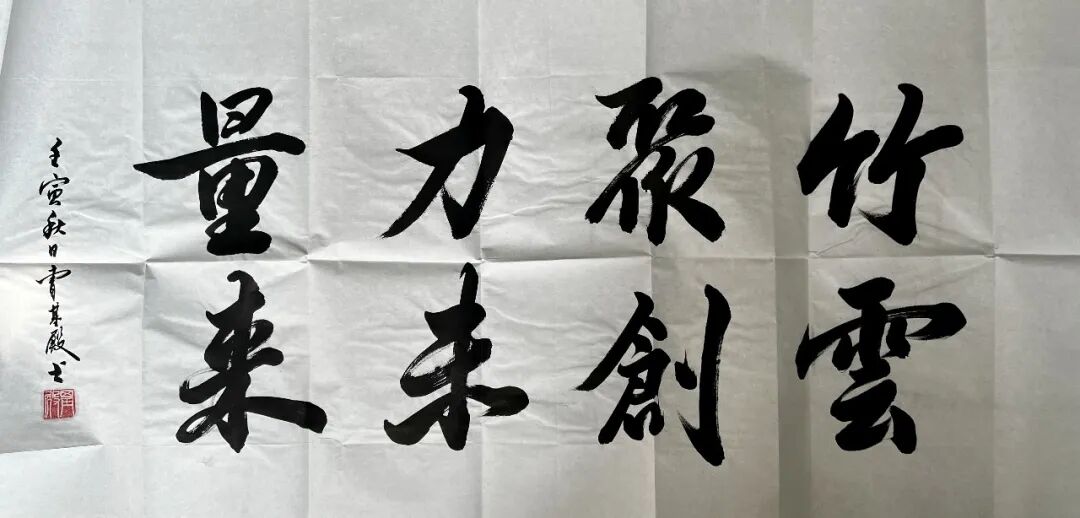 竹聚力量
雲創未来
壬寅秋日其殿书